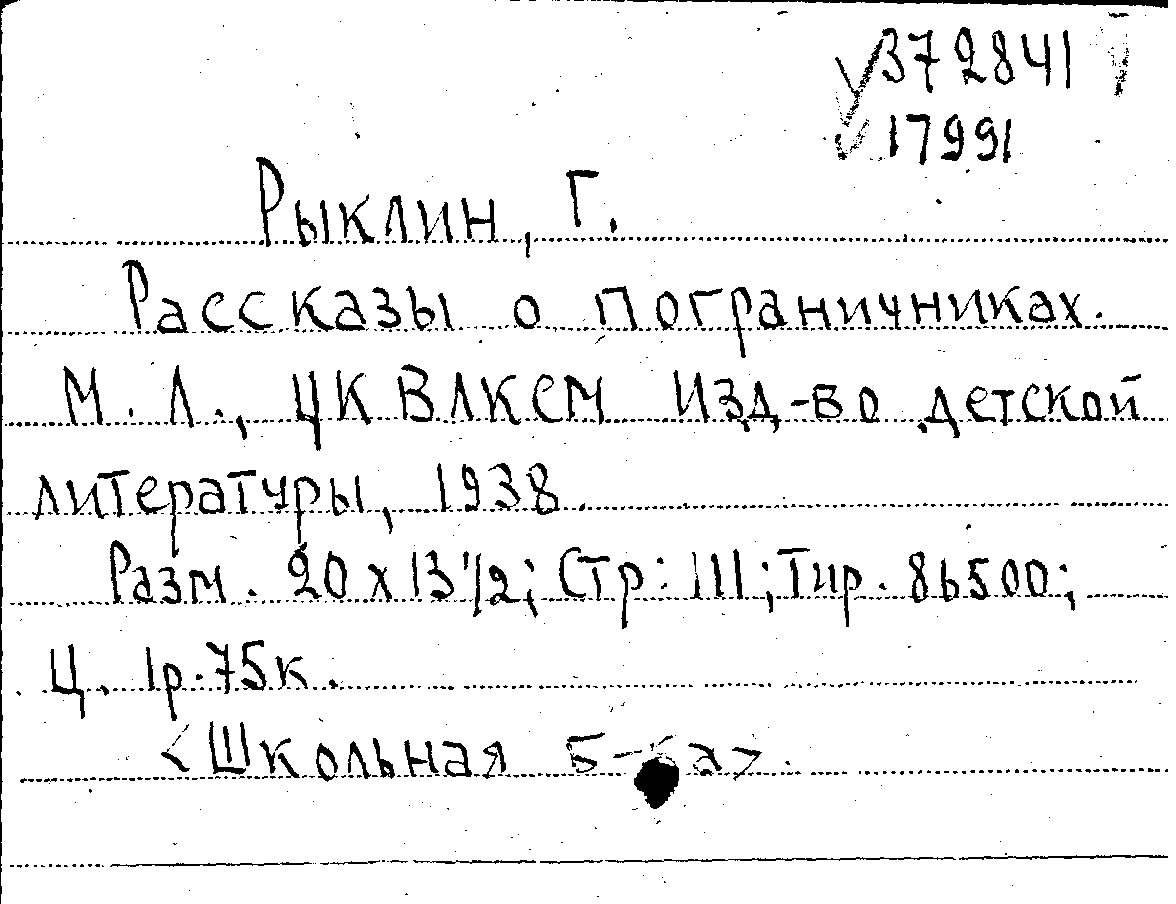 372841
17991
Рыклин, Г.
Рассказы о пограничниках.
М. Л., ЦК ВЛКСМ Изд-во детской
литературы, 1938.
Разм. 20 х 13 1/2; Стр: 111; Тир. 86500;
Ц. 1р.75к.
<Школьная б-ка>.